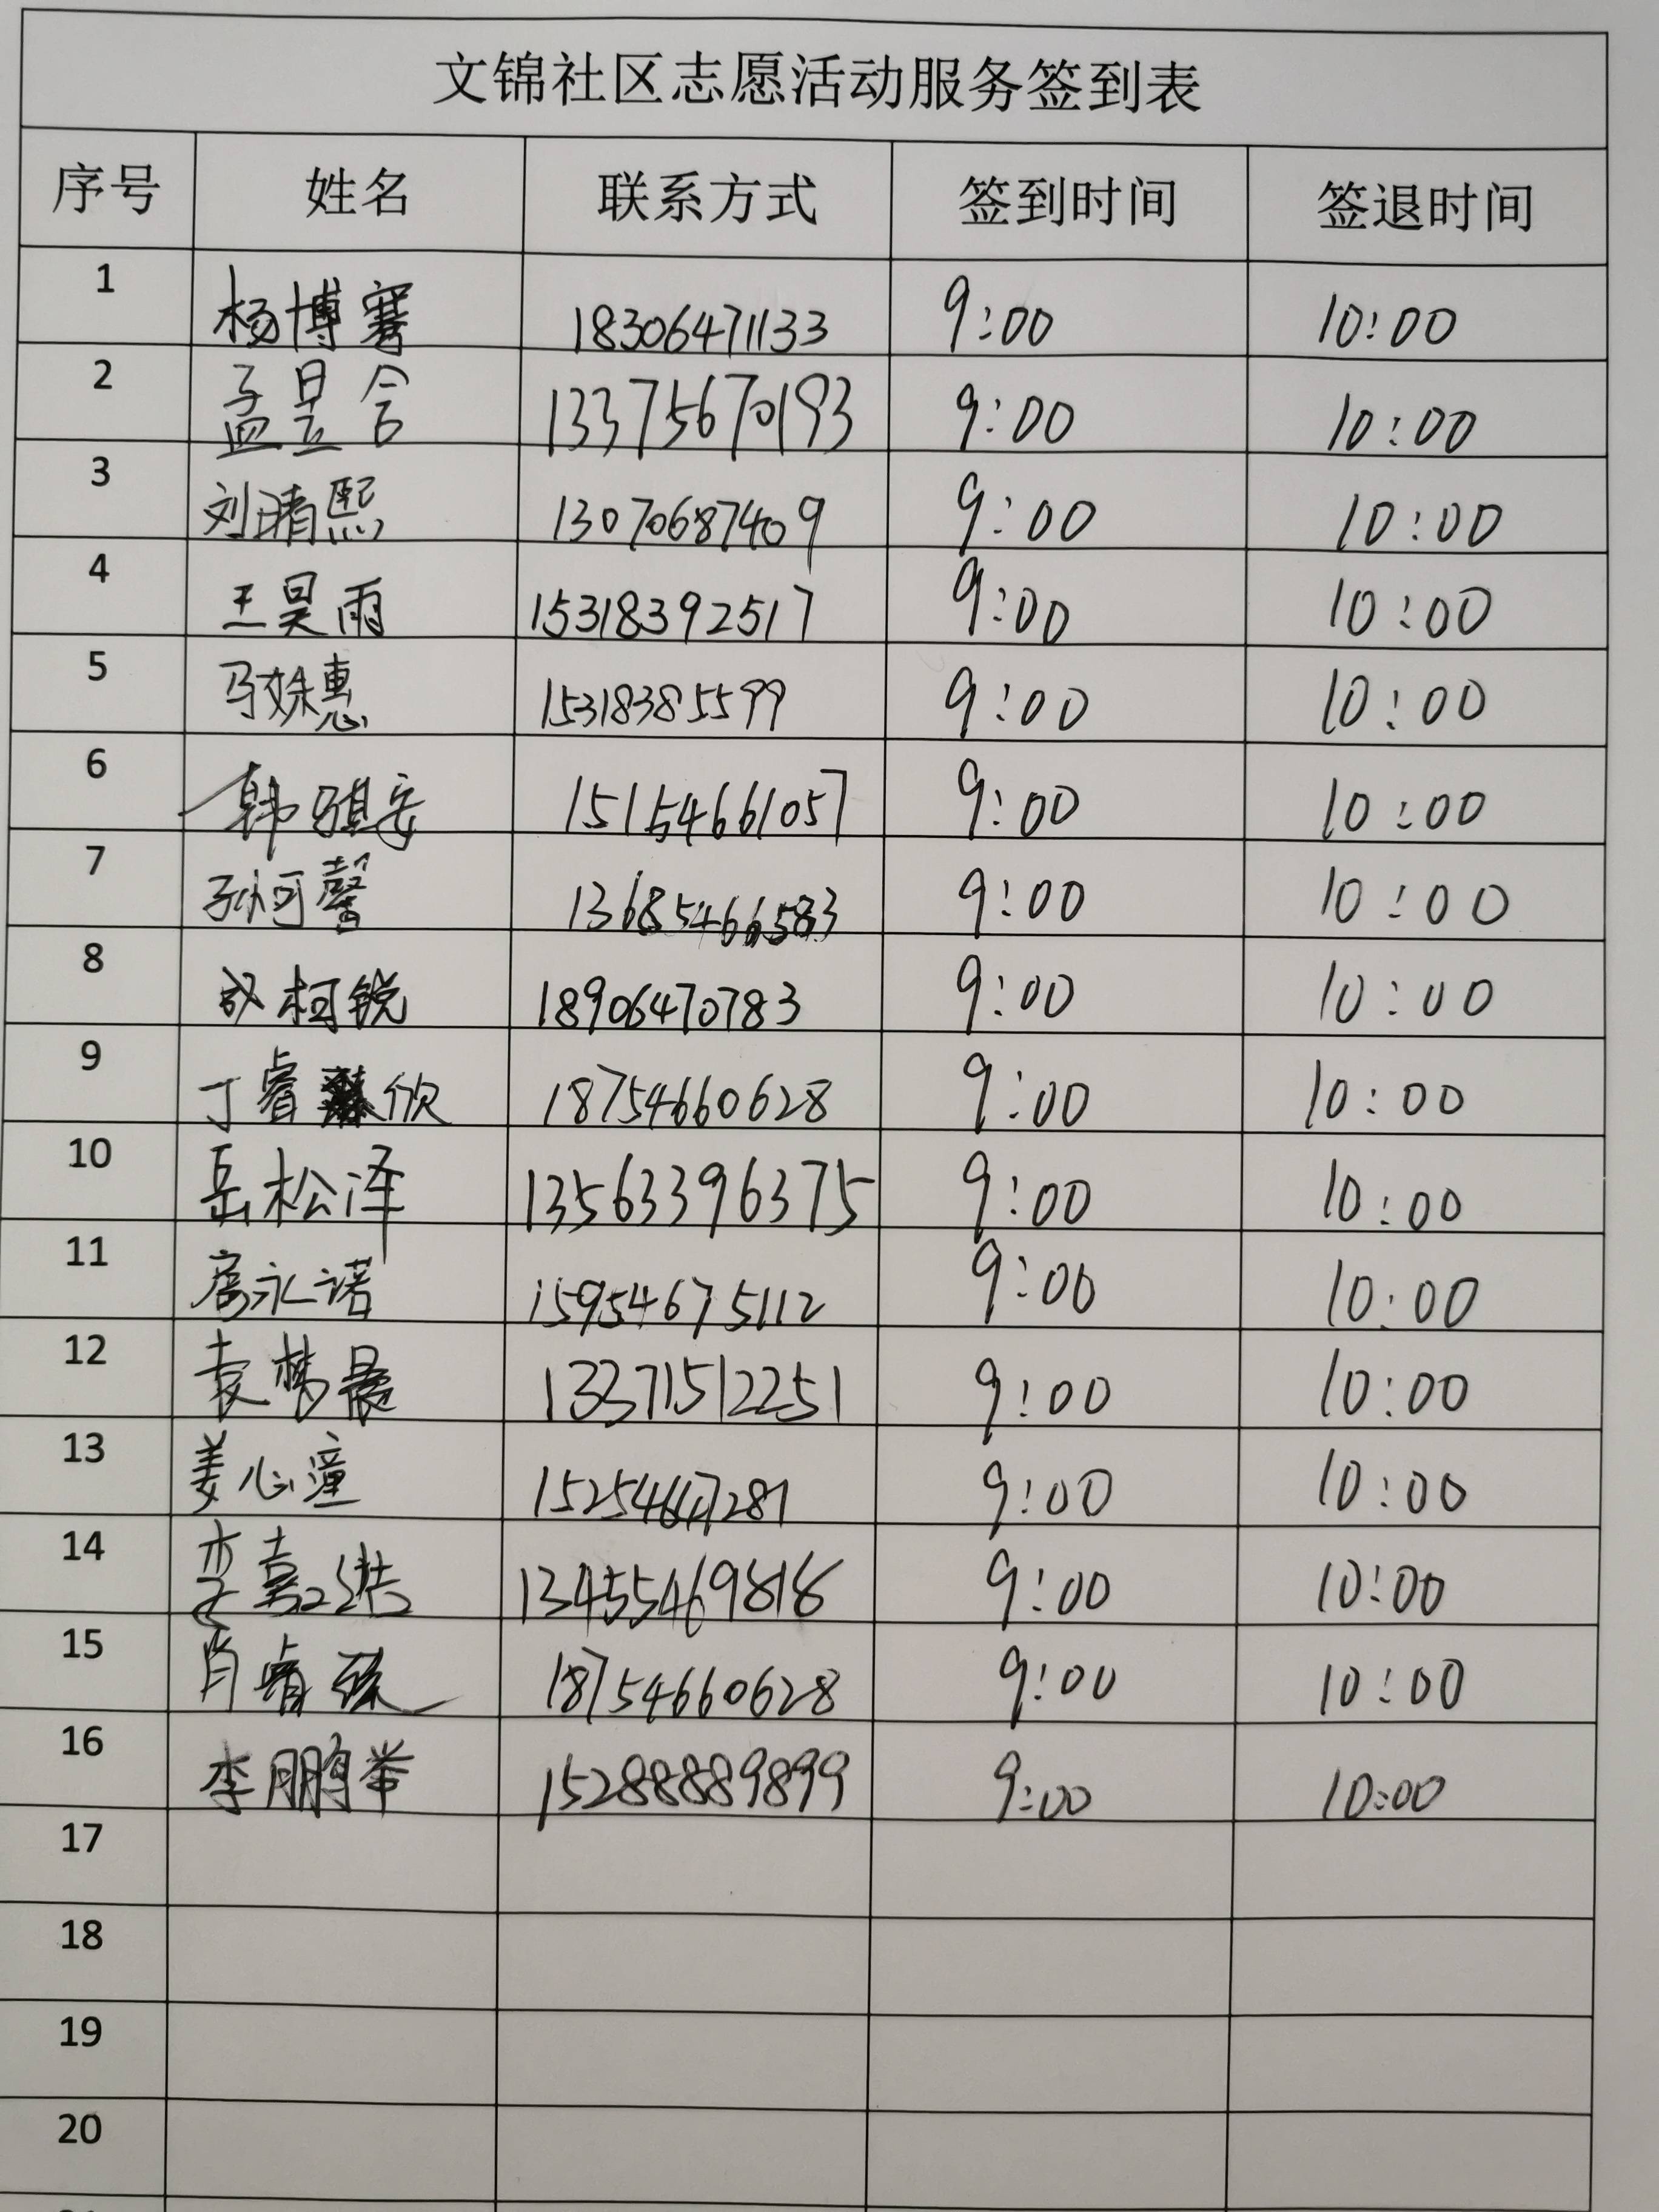 文锦社区志愿活动服务签到表
序号 姓名 联系方式 签到时间 签退时间
1 杨博骞 18306471133 9:00 10:00
2 孟昱含 13375670193 9:00 10:00
3 刘晴熙 13070687409 9:00 10:00
4 王昊雨 15318392517 9:00 10:00
5 马姝惠 15318385599 9:00 10:00
6 韩骐安 15154661057 9:00 10:00
7 孙柯馨 13685466583 9:00 10:00
8 成柯锐 18906470783 9:00 10:00
9 丁睿欣 18754660628 9:00 10:00
10 岳松泽 13563396375 9:00 10:00
11 扈永诺 15954675112 9:00 10:00
12 袁梦晨 13371512251 9:00 10:00
13 姜心潼 9:00 10:00
14 李嘉 13455469818 9:00 10:00
15 肖睿 18754660628 9:00 10:00
16 李鹏举 15288889899 9:00 10:00
17
18
19
20